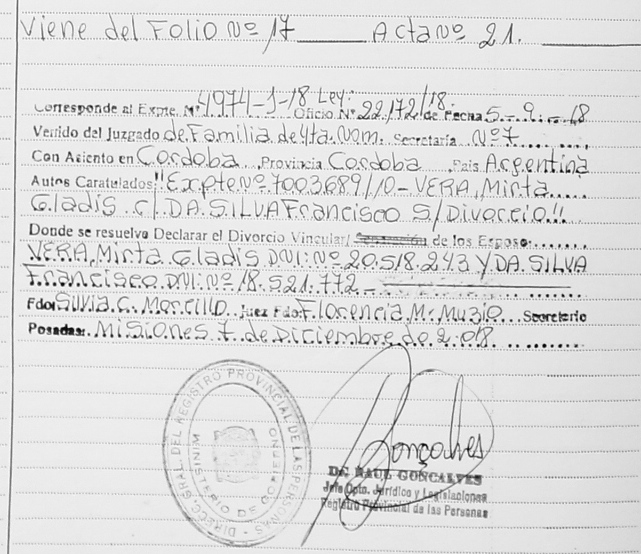 Viene del Folio Nº 17 Acta Nº 21.
Corresponde al Expte. Nº 4974-J-18 Ley: Oficio Nº 22.172/18. de Fecha 5.-9.-18
Vertido del Juzgado de Familia de 4ta. Nom. Secretaría Nº 7
Con Asiento en Cordoba Provincia Cordoba País Argentina
Autos Caratulados: "Expte Nº 7003689/10- VERA, Mirta
Gladis c/ DA SILVA Francisco S/Divorcio"
Donde se resuelve Declarar el Divorcio Vincular/ de los Esposos
VERA, Mirta Gladis DNI: Nº 20.518.243 Y DA. SILVA
Francisco DNI: Nº 18.521.772-
Fdo: Silvia C. Morcillo Juez Fdo: Florencia M. Muzio Secretario
Posadas: Misiones 7 de Diciembre de 2.018
DIRECC. GRAL. DEL REGISTRO PROVINCIAL DE LAS PERSONAS
MINISTERIO DE GOBIERNO
Gonçalves
DR. RAUL GONCALVES
Jefe Dpto. Jurídico y Legislaciones
Registro Provincial de las Personas